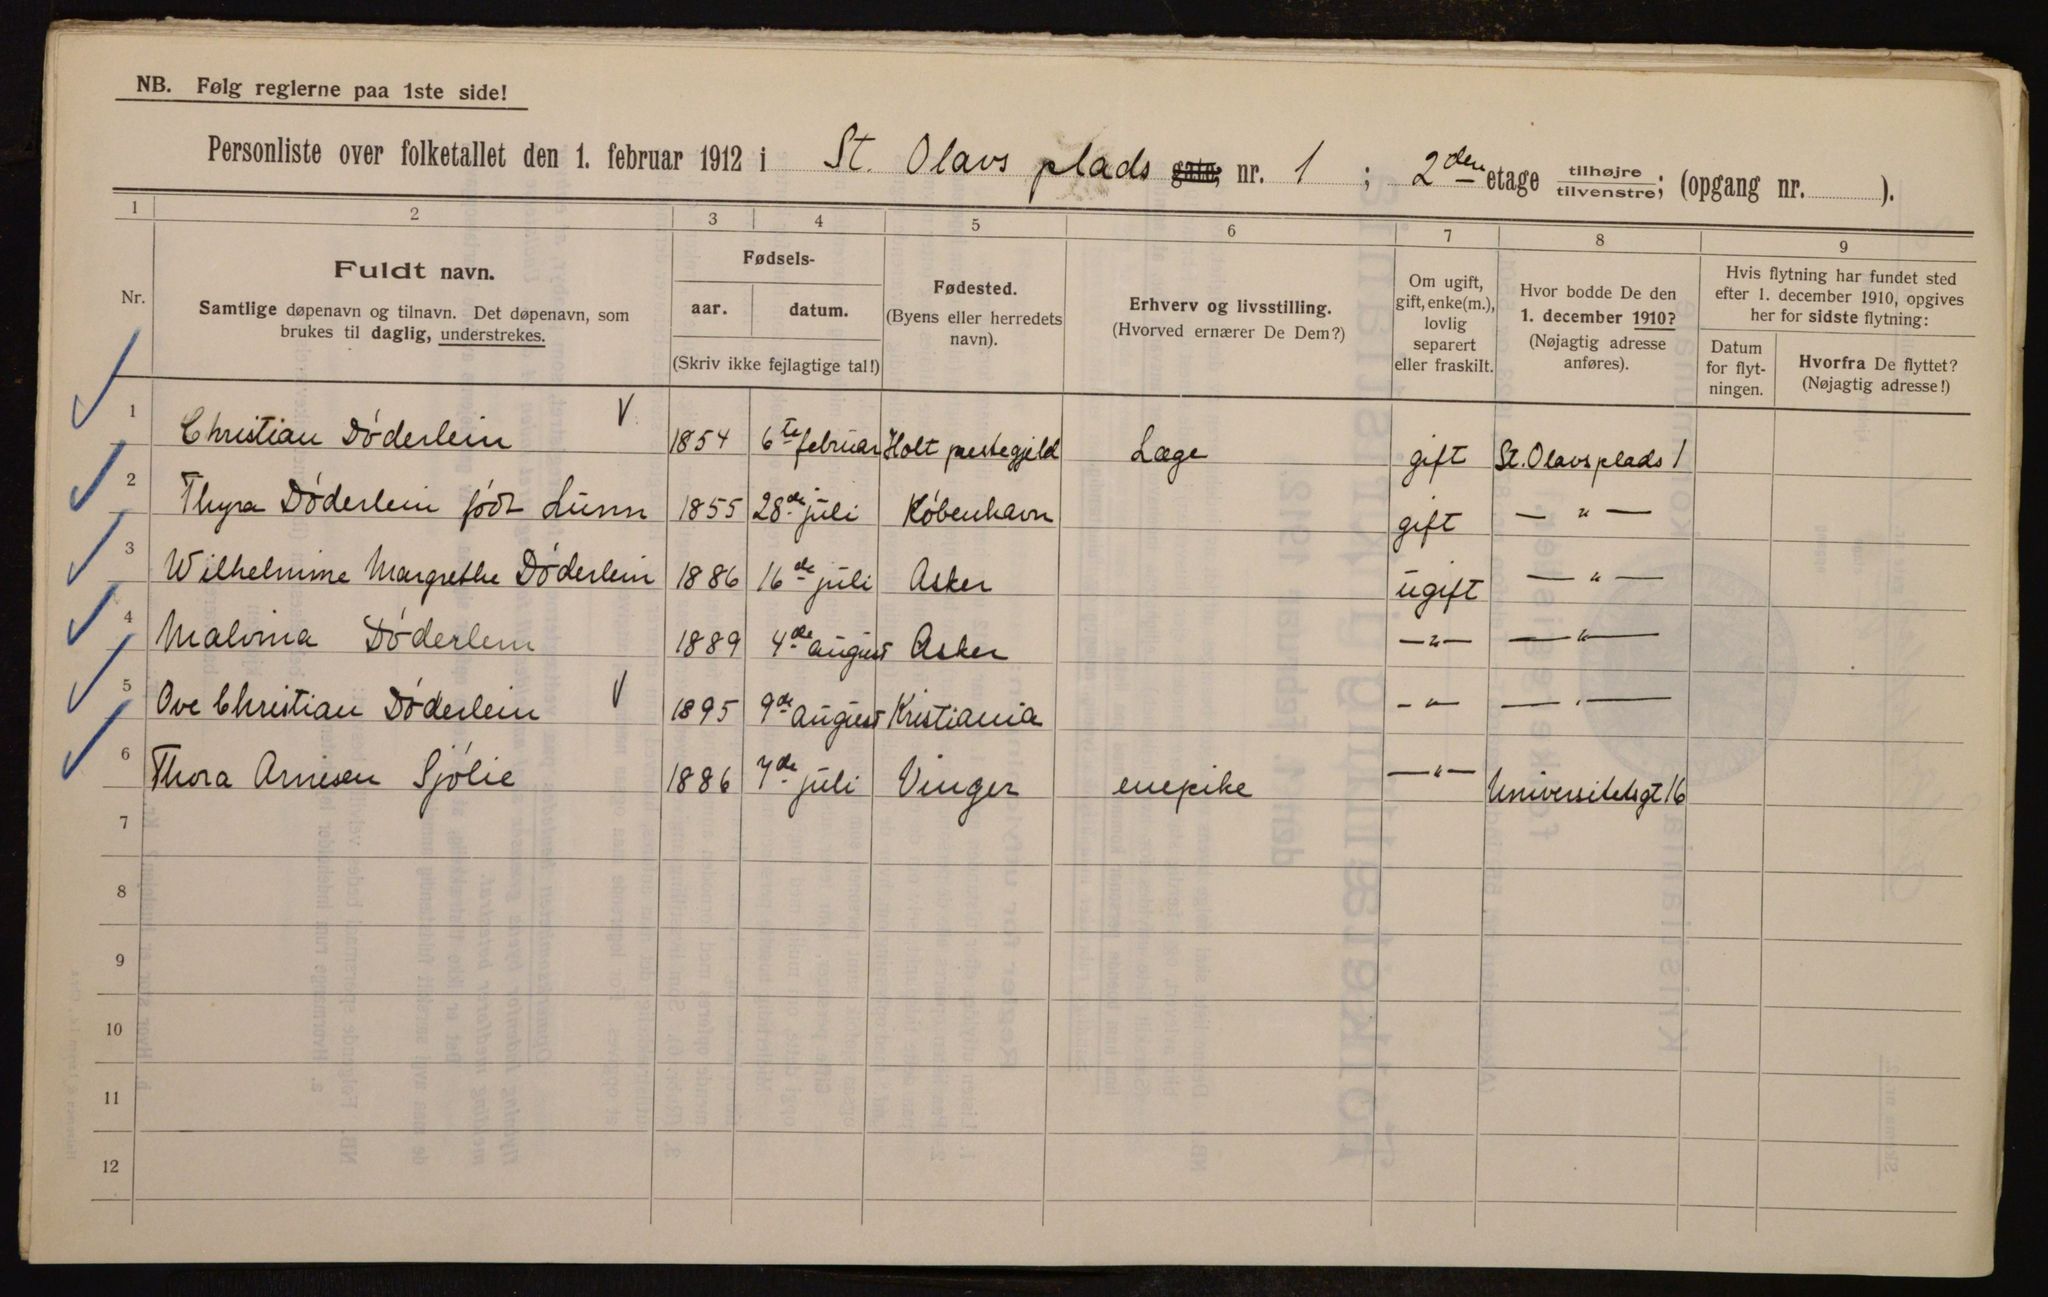 NB. Følg reglerne paa 1ste side!
Personliste over folketallet den 1. februar 1912 i St. Olavs plads gate; nr. 1 ; 2den etage tilhøjre tilvenstre; (opgang nr. ).
1 2 3 4 5 6 7 8 9
Nr.
Fuldt navn.
Samtlige døpenavn og tilnavn. Det døpenavn, som
brukes til daglig, understrekes.
Fødsels-
aar. datum.
(Skriv ikke fejlagtige tal!)
Fødested.
(Byens eller herredets
navn).
Erhverv og livsstilling.
(Hvorved ernærer De Dem?)
Om ugift,
gift, enke(m.),
lovlig
separert
eller fraskilt.
Hvor bodde De den
1. december 1910?
(Nøjagtig adresse
anføres).
Hvis flytning har fundet sted
efter 1. december 1910, opgives
her for sidste flytning:
Datum
for flyt-
ningen.
Hvorfra De flyttet?
(Nøjagtig adresse!)
1 Christian Döderlein V 1854 6te februar Holt prestegjeld Læge gift St. Olavs plads 1
2 Thyra Döderlein født Lunn 1855 28de juli København gift — " —
3 Wilhelmine Margrethe Döderlein 1886 16de juli Asker ugift — " —
4 Malvina Döderlein 1889 4de august Asker — " — — " —
5 Ove Christian Döderlein V 1895 9de august Kristiania — " — — " —
6 Thora Arnesen Sjölie 1886 7de juli Vinger enepike — " — Universitetsgt 16
7
8
9
10
11
12